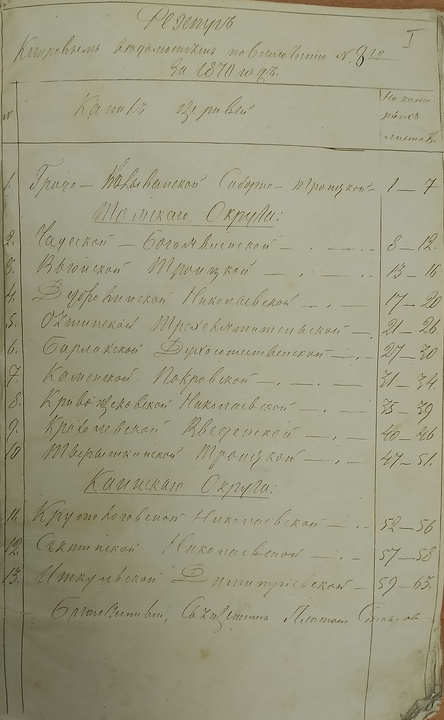 Реэстръ I
Клировымъ ведомостямъ по благочинію № 
За 1870 годъ.
№ Какихъ церквей На какихъ листахъ.
1. Градо – Колыванской Соборо – Троицкой – 1 – 7
Томскаго Округа:
2. Чаусской – Богоявленской – 8 – 12.
3. Вьюнской Троицкой – 13 – 16
4. Дубровинской Николаевской – 17 – 20
5. Трехсвятительской – 21 – 26
6. Барлакской Духосошественской – 27 – 30
7. Каменской Покровской – 31 – 34
8. Кривощековской Николаевской – 35 – 39
9. Введенской – 40 – 46
10. Тырышкинской Троицкой – 47 – 51.
Каинскаго Округа:
11. Крутологовской Николаевской – 52 – 56
12. Сектинской Николаевской – 57 – 58
13. Иткульской Димитріевской – 59 – 63.
Благочинный, Священникъ Платонъ